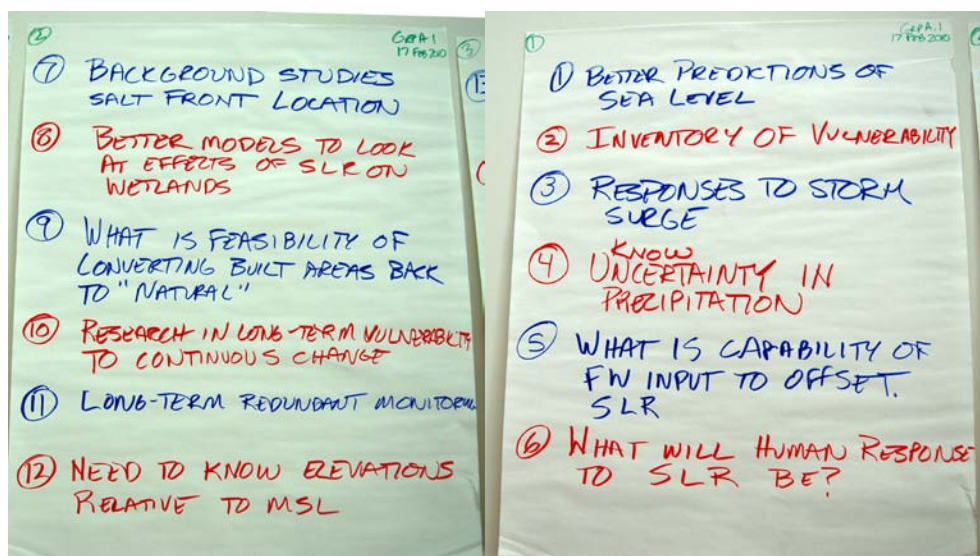 ②
GRP A.1
17 FEB 2010
⑦ BACKGROUND STUDIES
SALT FRONT LOCATION
⑧ BETTER MODELS TO LOOK
AT EFFECTS OF SLR ON
WETLANDS
⑨ WHAT IS FEASIBILITY OF
CONVERTING BUILT AREAS BACK
TO "NATURAL"
⑩ RESEARCH IN LONG-TERM VULNERABILITY
TO CONTINUOUS CHANGE
⑪ LONG-TERM REDUNDANT MONITORING
⑫ NEED TO KNOW ELEVATIONS
RELATIVE TO MSL
③
13
①
GRP A.1
17 FEB 2010
① BETTER PREDICTIONS OF
SEA LEVEL
② INVENTORY OF VULNERABILITY
③ RESPONSES TO STORM
SURGE
KNOW
④ UNCERTAINTY IN
PRECIPITATION
⑤ WHAT IS CAPABILITY OF
FW INPUT TO OFFSET.
SLR
⑥ WHAT WILL HUMAN RESPONSE
TO SLR BE?